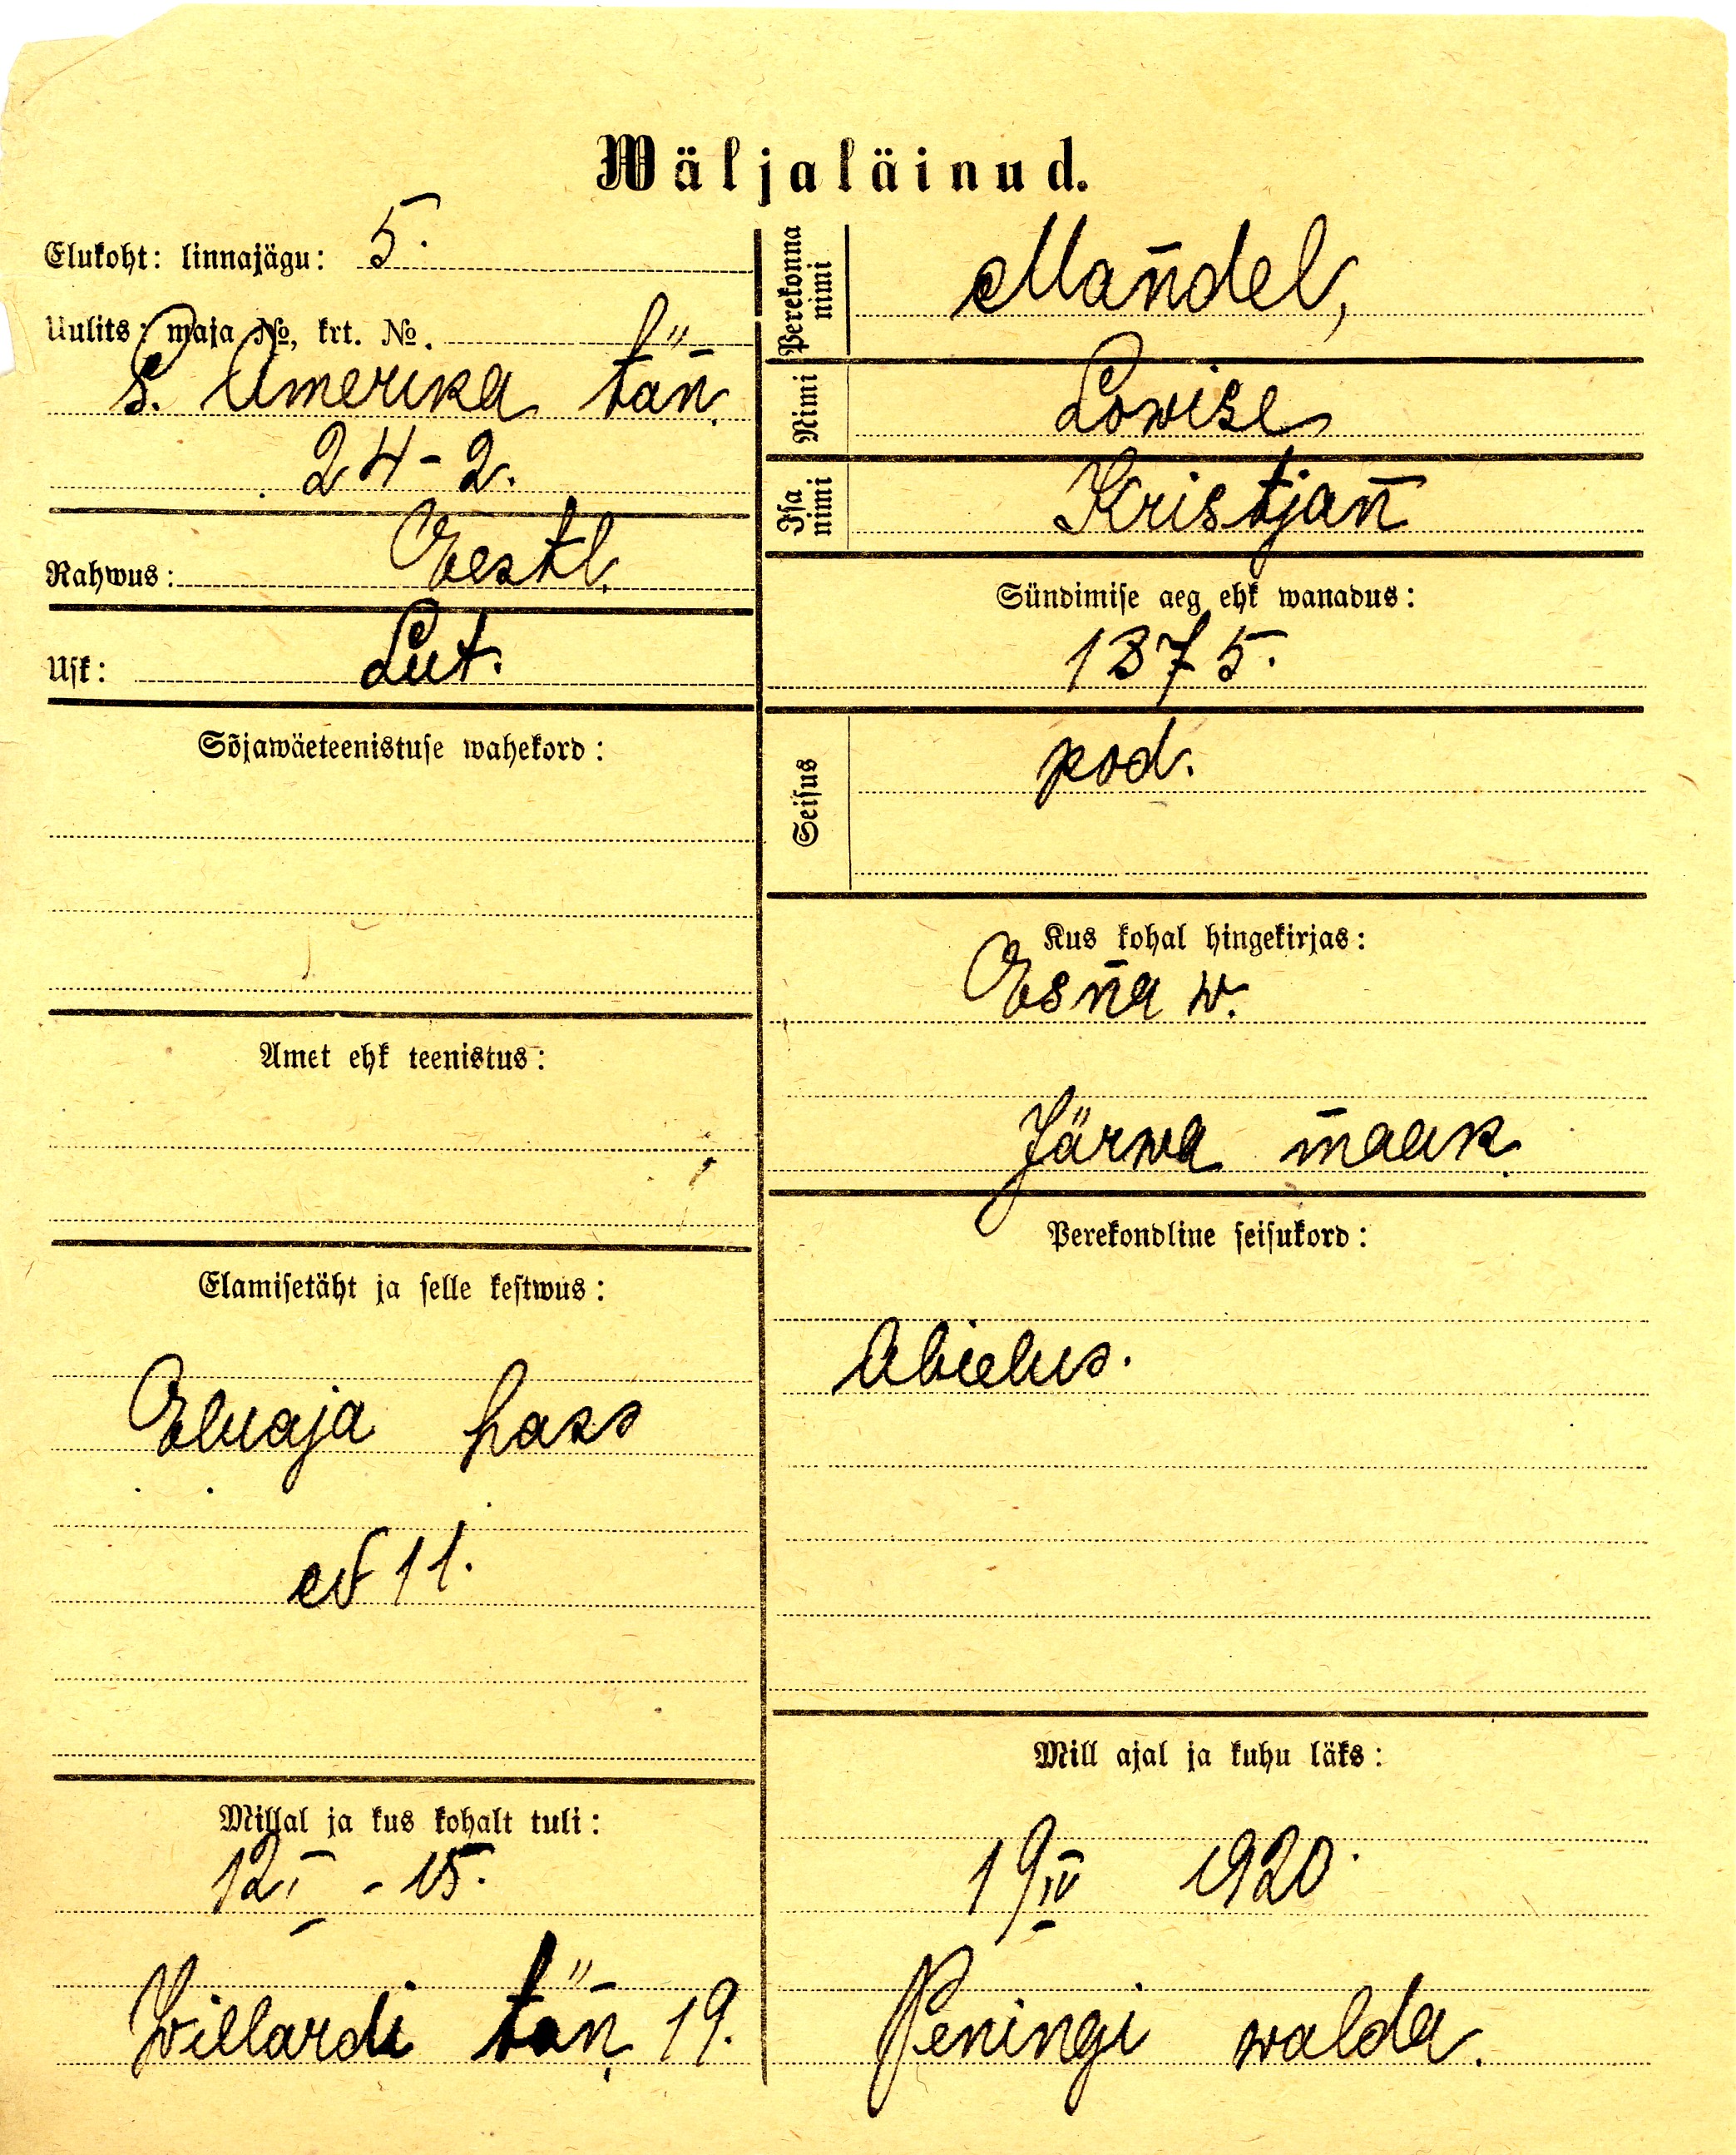 Wäljaläinud.
Elukoht: linnajägu: 5.
Uulits: maja №, krt. №.
S. Amerika tän.
24-2.
Rahwus: Eestl.
Usk: Lut.
Sõjawäeteenistuse wahekord:
Amet ehk teenistus:
Elamisetäht ja selle kestwus:
Eluaja pass
№ 11.
Millal ja kus kohalt tuli:
12 I - 15.
Willardi tän. 19.
Perekonna nimi
Mandel,
Nimi
Lowise
Isa nimi
Kristjan
Sündimise aeg ehk wanadus:
1875.
Seisus
pod.
Kus kohal hingekirjas:
Esna w.
Järwa maak.
Perekondline seisukord:
Abielus.
Mill ajal ja kuhu läks:
19 IV 1920.
Peningi walda.